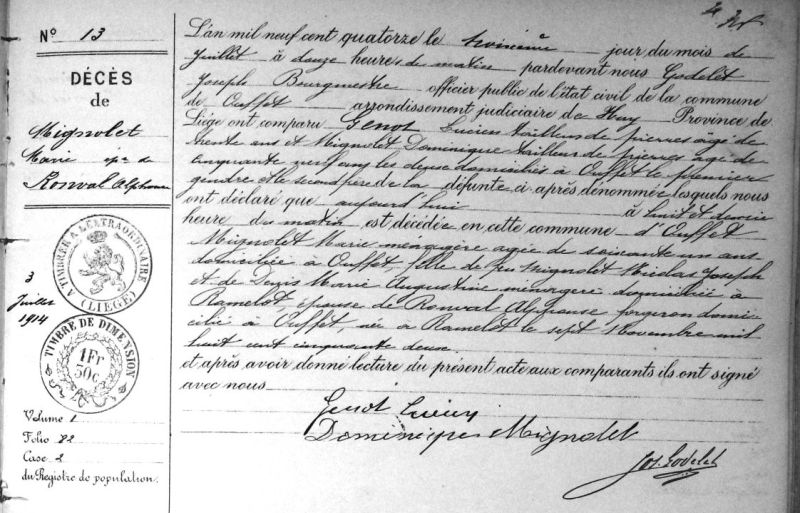 Nº 13
DÉCÈS
de
Mignolet
Marie épse de
Ronval Alphonse
A TIMBRER A L'EXTRAORDINAIRE
(LIÈGE)
3
Juillet
1914
TIMBRE DE DIMENSION
1Fr
50c
Volume 1
Folio 82
Case 2
du Registre de population.
L'an mil neuf cent quatorze le troisième jour du mois de
Juillet à douze heures de matin pardevant nous Godelet
Joseph Bourgmestre officier public de l'état civil de la commune
de Ouffet arrondissement judiciaire de Huy Province de
Liége ont comparu Genot Lucien tailleur de pierres âgé de
trente ans et Mignolet Dominique tailleur de pierres âgé de
cinquante neuf ans les deux domiciliés à Ouffet le premier
gendre et le second frère de la défunte ci après dénommée lesquels nous
ont déclaré que aujourd'hui à huit et demie
heure du matin est décédée en cette commune d'Ouffet
Mignolet Marie ménagère âgée de soixante un ans
domiciliée à Ouffet, fille de feu Mignolet Nicolas Joseph
et de Denis Marie Augustine ménagère domiciliée à
Ramelot, épouse de Ronval Alphonse forgeron domi
cilié à Ouffet, née à Ramelot le sept Novembre mil
huit cent cinquante deux.
et après avoir donné lecture du présent acte aux comparants ils ont signé
avec nous
Genot Lucien
Dominique Mignolet
Jos. Godelet